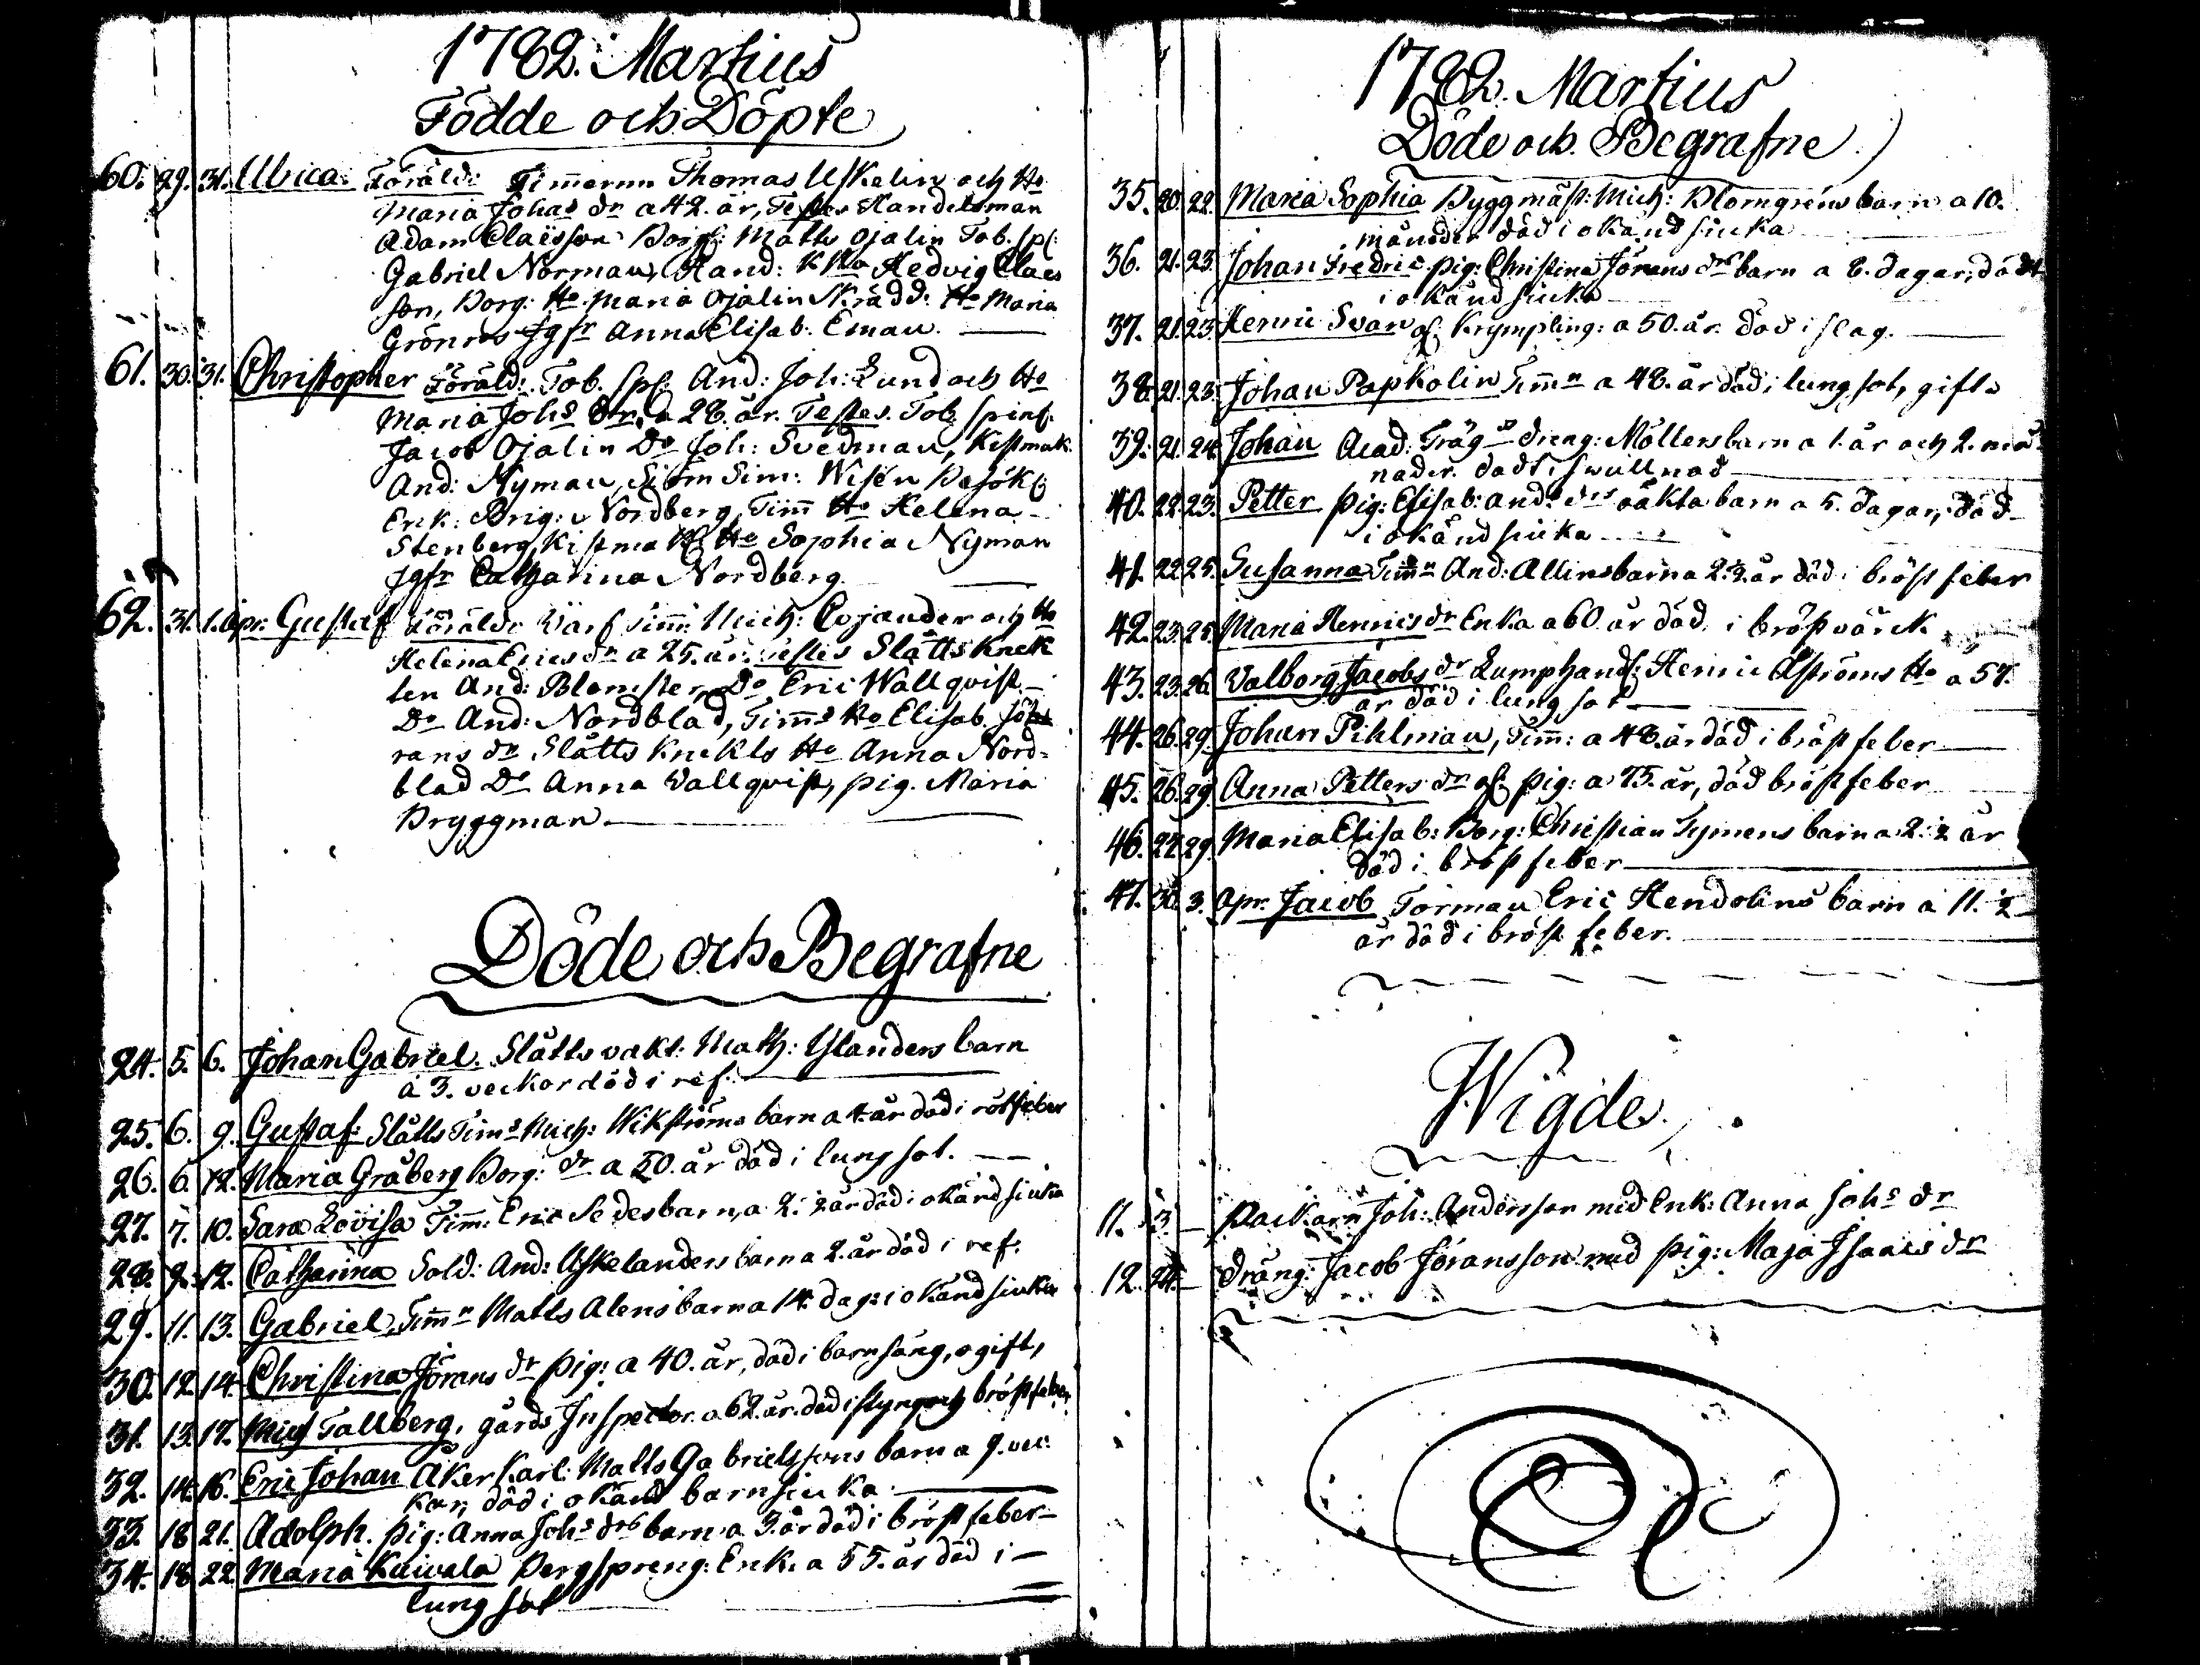 1782. Martius
Födde och Döpte
60. 29. 31. Ulrica. Föräld: Timmerm Thomas Uskelin och Ho
Maria Johas dr a 42. år, Testes Handelsman
Adam Claësson Borg: Matts Ojalin Tob. sp:
Gabriel Norman, Hand: Ho Hedvig Claes
son, Borg: Ho Maria Ojalin Skrädd: Ho Maria
Grönros Jgfr Anna Elisab. Eman.
61. 30. 31. Christopher Föräld: Tob. sp: And: Joh: Lund och Ho
Maria Johs dr. a 28. år. Testes. Tob. spin:
Jacob Ojalin Do Joh: Svedman, Kistmak.
And: Nyman, Sim: Wisén Besök:
Erik: Brig: Nordberg, Timm Ho Helena
Stenberg, Kistmak Ho Sophia Nyman
Jgfr Catharina Nordberg.
62. 31. 1. Apr. Gustaf Föräldr Varf Timm: Mich: Cojander och Ho
Helena Erics dr a 25. år. Testes Slåtts Knek
ten And: Blomster, Do Eric Wallqvist
Do And: Nordblad, Timms Ho Elisab. Jö
rans dr Slåtts Knekts Ho Anna Nord=
blad Do Anna Vallqvist, pig. Maria
Bryggman.
Döde och Begrafne
24. 5. 6. Johan Gabriel. Slåtts vakt: Math: Ylanders barn
a 3. veckor död i ref.
25. 6. 9. Gustaf: Slåtts Timms Mich: Wikströms barn a 4. år död i rötfeber
26. 6. 12. Maria Gråberg Borg: dr a 50. år död i lungsot.
27. 7. 10. Sara Lovisa Timm: Eric Sedes barn, a 2. ½ år död i okänd siuka
28. 9. 12. Catharina Sold: And: Uskelanders barn a 2. år död i ref.
29. 11. 13. Gabriel, Timn Matts Alens barn a 14. dag: i okänd siuka
30. 12. 14. Christina Jörans dr pig: a 40. år, död i barnsäng, ogift,
31. 13. 17. Mich Tallberg, gårds Inspector a 62. år. död i styng och bröstfeber
32. 14. 16. Eric Johan Åker Karl: Matts Gabrielssons barn a 9. vec
kor, död i okänd barnsiuka.
33. 18. 21. Adolph. pig: Anna Johs drs barn a 3. år död i bröstfeber
34. 18. 22. Maria Kuivala Bergspreng: Enk. a 55. år död i
lungsot
1782. Martius
Döde och Begrafne
35. 20. 22. Maria Sophia Byggmäst: Mich: Blomgréns barn a 10.
månader död i okänd siuka
36. 21. 23. Johan Fredric pig: Christina Jörans drs barn a 8. dagar, dödt
i okänd siuka
37. 21. 23. Henric Svan gl: Krympling: a 50. år. död i slag.
38. 21. 23. Johan Papkolin Timmn a 48. år död i lungsot, gift
39. 21. 24. Johan Acad: Trägs dreng: Möllers barn a 1. år och 2. må
nader. dödt i swullnad
40. 22. 23. Petter pig: Elisab: And: drs oäkta barn a 5. dagar, död
i okänd siuka
41. 22. 25. Susanna Timmn And: Allins barn a 2. ½. år död i bröstfeber
42. 23. 25. Maria Henrics dr Enka a 60 år död i bröstvärck
43. 23. 26. Valborg Jacobs dr Lumphand: Henric Åströms Ho a 57.
år död i lungsot
44. 26. 29. Johan Pihlman, Timm: a 48. år död i bröstfeber
45. 26. 29. Anna Petters dr gl: pig: a 75. år, död bröstfeber
46. 27. 29. Maria Elisab: Borg: Christian Tymens barn a 2. ½ år
död i bröstfeber
47. 30. 3. Apr. Jacob Torman Eric Hendolins barn a 11. ½
år död i bröstfeber.
Wigde.
11. 3. Packarn Joh: Andersson med Enk: Anna Johs dr
12. 24. dräng: Jacob Jöransson med pig: Maja Isaacs dr